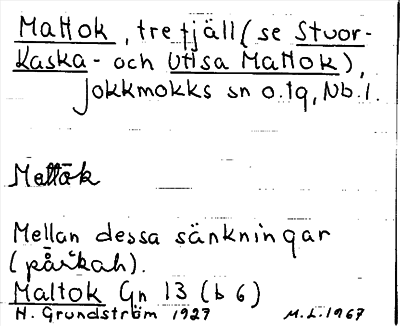 Mattok, tre fjäll (se Stuor-
Kaska- och Utsa Mattok),
Jokkmokks sn o. tg, Nb. l.
Mattōk
Mellan dessa sänkningar
(pårkah).
Maltok Gn 13 (b 6)
H. Grundström 1927 M.L. 1967